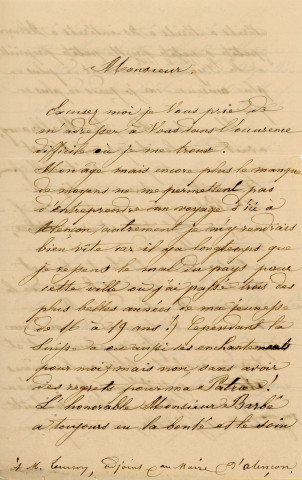 Monsieur.
Excusez moi je Vous prie de
m'adresser à Vous dans l'occurence
difficile où je me trouve!
Mon âge mais encore plus le manque
de moyens ne me permettent pas
d'entreprendre un voyage d'ici à
Alençon, autrement je m'y rendrais
bien vite car il y a longtemps que
je ressens le mal du pays pour
cette ville où j'ai passé trois des
plus belles années de ma jeunesse
(de 16 à 19 ans!) Cependant la
Suisse a eu aussi ses enchantements
pour moi, mais non sans avoir
des regrets pour ma Patrie!
L'honorable Monsieur Barbé
a toujours eu la bonté et le soin
à M. adjoint au Maire d'Alençon.